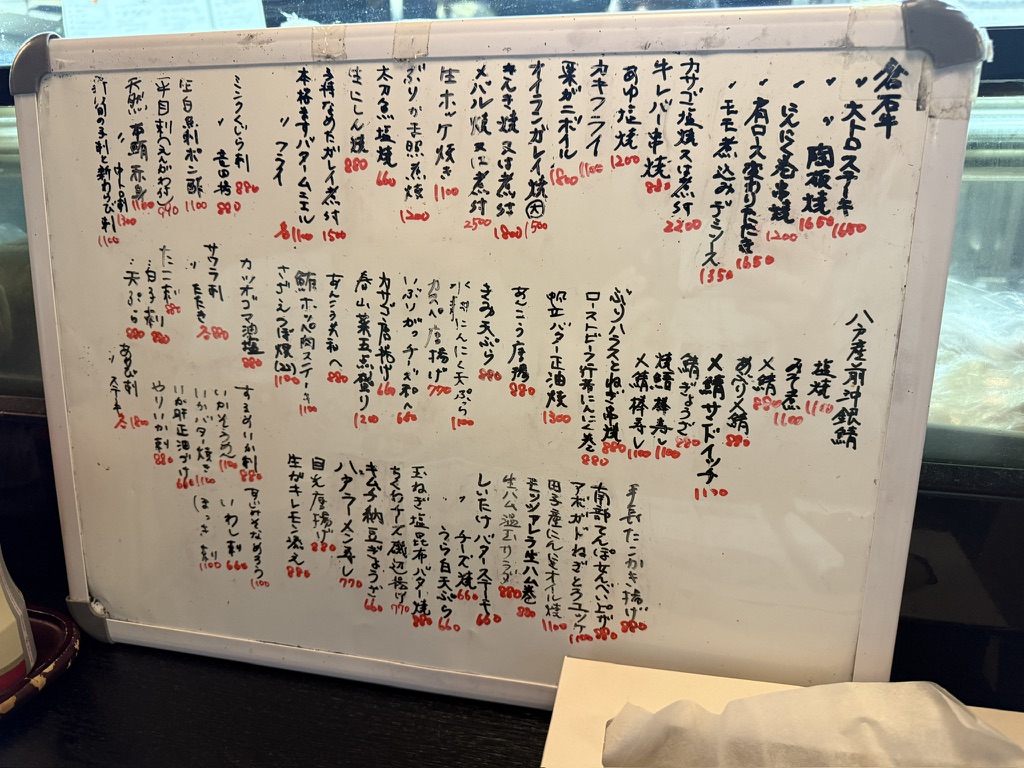 倉石牛
〃 大トロステーキ 1650
〃 陶板焼 1650
〃 にんにく巻串焼 1200
〃 肩ロース変わりたたき 1650
〃 モモ煮込みデミソース 1350
カサゴ塩焼又は煮付 2200
牛レバー串焼 880
あゆ塩焼 1200
カキフライ 1100
栗がにボイル 1800
ナイランガレイ焼 大 1500
きんき焼又は煮付 1800
メバル焼又は煮付 2500
生ホッケ焼き 1100
ぶりカマ照焼 1200
太刀魚塩焼 660
生にしん焼 880
子持なめたがれイ煮付 1500
本格ますバタームニエル 1100
〃 フライ
ミンクくじら刺 880
〃 竜田揚 880
生白魚刺ポン酢 1100
平目刺(えんがわ付) 990
天然本鮪赤身 1100
〃 中トロ刺 1300
1100
八戸産前沖銀鯖
塩焼 1100
みそ煮 1100
〆鯖 880
あぶり〆鯖 880
〆鯖サンドイッチ 1100
鯖ぎょうざ 880
焼鯖棒寿し 1100
〆鯖棒寿し 1100
ぶりハラスとねぎ串焼 880
ローストビーフ行者にんにく巻 880
帆立バター正油焼 1300
あんこう唐揚 880
きみ天ぷら 880
にんにく天ぷら 1100
唐揚げ 770
いぶりがっチーズ和え 660
カサゴ唐揚げ 660
春山菜五点盛り 1200
あんこう共和へ 880
鮪ホッペ肉ステーキ 1100
さざえつぼ焼(2コ) 1100
カツオゴマ油塩 880
サワラ刺
〃 たたき 各880
たこ刺 880
〃 白子刺 880
〃 天ぷら 880
あわび刺
〃 ステーキ 各1800
平長たこかき揚げ 880
南部てんぽせんべいピザ 880
アボガドねぎとろユッケ 1100
田子産にんにくオイル焼 1100
モッツァレラ生ハム巻 880
生ハム温玉サラダ 880
しいたけバターステーキ 660
〃 チーズ焼 660
〃 うら白天ぷら 660
玉ねぎ塩昆布バター焼 880
ちくわチーズ磯辺揚げ 770
キムチ納豆ぎょうざ 660
ハタラーメン寿し 770
目光唐揚げ 880
生がキレモン添え 880
するめいか刺 880
いかそうめん 1100
いかバター焼き 1100
いか肝正油づけ 660
やりいか刺 880
なめろう 1100
いわし刺 660
ほっき刺 1100